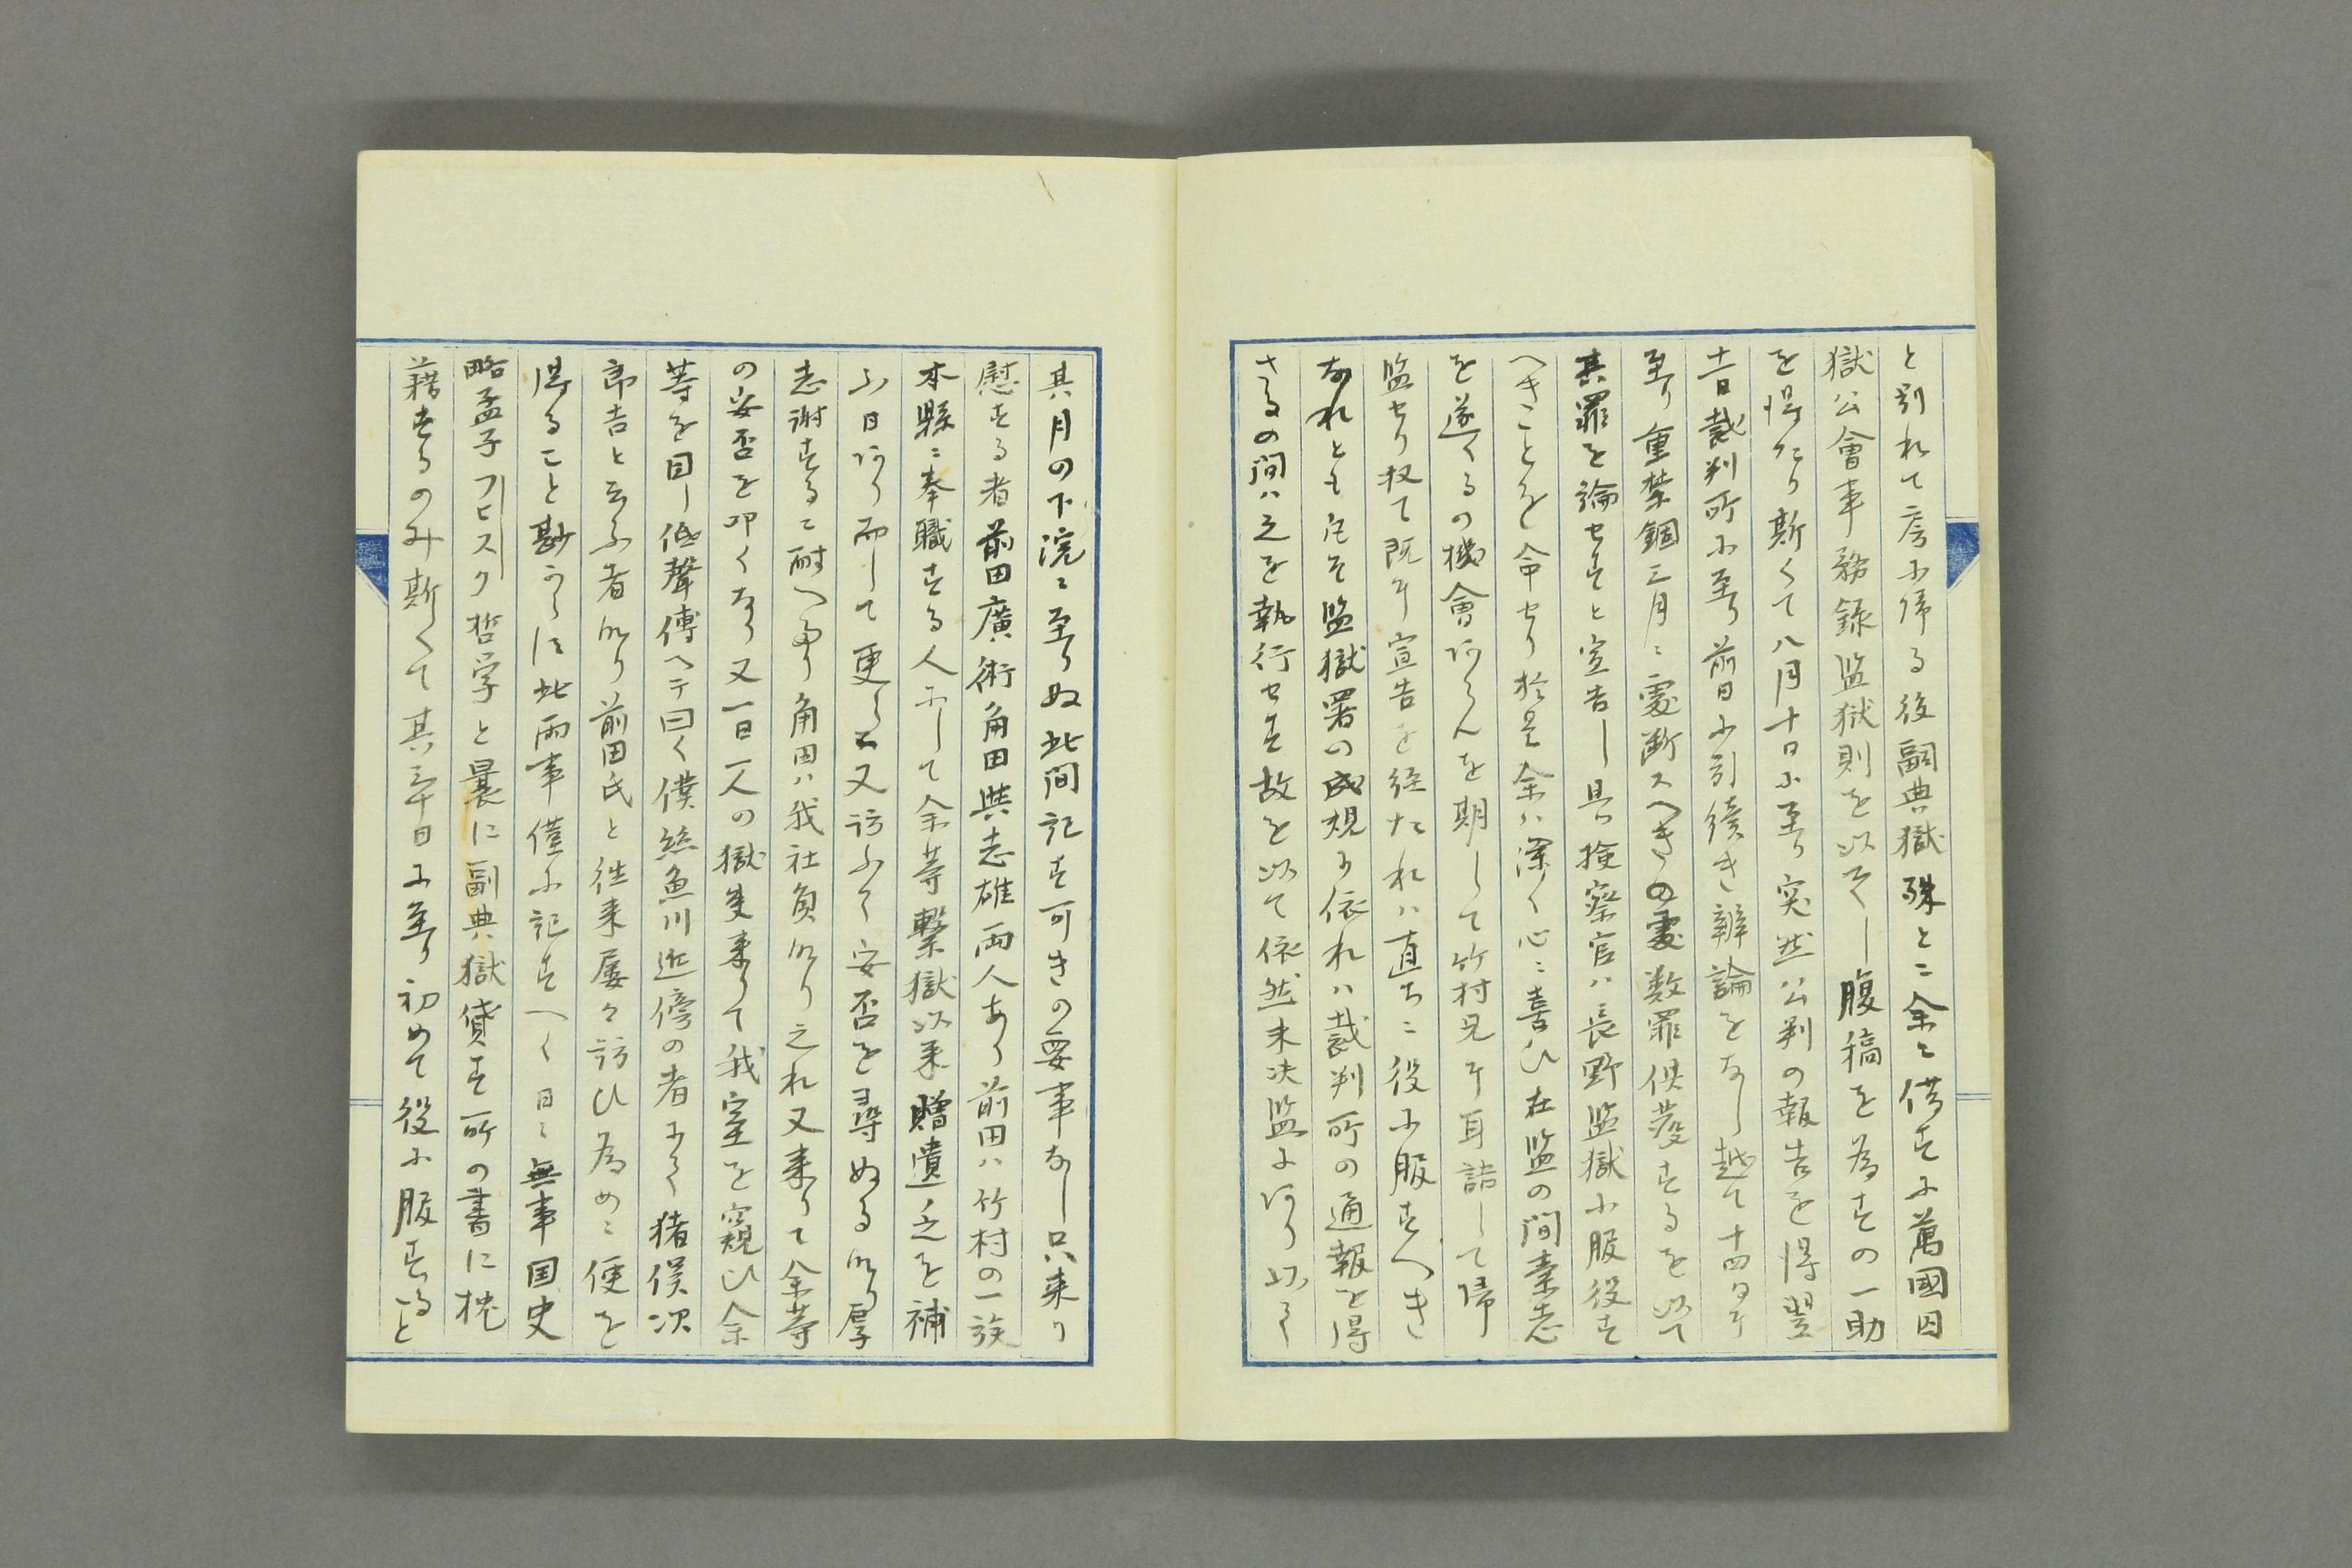 と別れて房に帰る後副典獄殊とニ余ニ借すに萬國囚
獄公會事務録監獄則を以てし腹稿を為すの一助
を得たり斯くて八月十日に至り突然公判の報告を得翌
十一日裁判所に至り前日に引續き辨論をなし越て十四日ニ
至り重禁錮三月ニ處断スへきの處数罪倶發するを以て
其罪を論せすと宣告し且つ撿察官ハ長野監獄に服役す
へきことを命せり於是余ハ深く心ニ喜ひ在監の間素志
を遂くるの機會あらんを期して竹村兄ニ耳語して帰
監せり扨て既ニ宣告を経たれハ直ちニ役に服すへき
なれとも元来監獄署の成規に依れハ裁判所の通報を得
さるの間ハ之を執行せす故を以て依然未决監にあり如く
其月の下浣ニ至りぬ此間記す可きの要事なし只来り
慰する者前田廣術角田與志雄両人あり前田ハ竹村の一族
本縣ニ奉職する人にして余等繋獄以来贈遺乏を補
ふ日あり而して更らニ又訪ふて安否を尋ぬるあり厚
志謝するに耐へたり角田ハ我社員なり之れ又来りて余等
の安否を叩くなり又一日一人の獄吏来りて我室を窺ひ余
等を目し低聲傳へテ曰く僕絲魚川近傍の者にて猪俣次
郎吉と云ふ者なり前田氏と往来屡々訪ひ為めニ便を
得ること尠からす此両事僅に記すへく日ニ無事国史
略孟子フヒスク哲学と曩に副典獄貸す所の書に枕
藉するのみ斯くて其三十日に至り初めて役に服すると